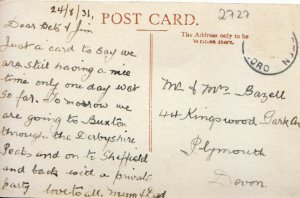 24/8/31.
POST CARD.
2727
The Address only to be
Written Here.
Dear Deb & Jim
Just a card to say we
are still having a nice
time only one day wet
so far. Tomorrow we
are going to Buxton
through the Derbyshire
Peaks and on to Sheffield
and back with a private
party love to all. Mum & Dad
Mr & Mrs Bazell
41 Kingswood Park Av
Plymouth
Devon.